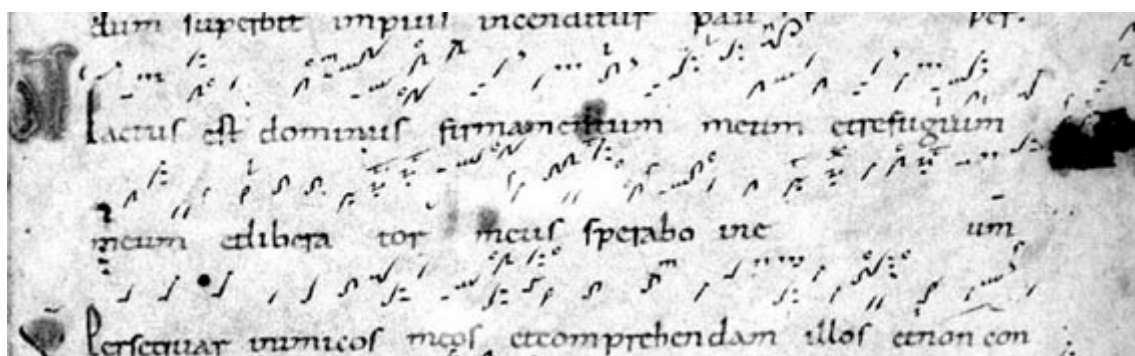 dum superbit impius incenditur pau per.
Factus est dominus firmamentum meum etrefugium
meum etlibera tor meus sperabo ine um
Persequar inimicos meos etcomprehendam illos etnon con